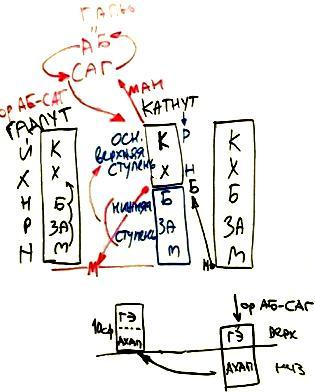 ГАЛЬГ
АБ
САГ
МАН
ор АБ-САГ
ГАДЛУТ
КАТНУТ
Й
Х
Н
Р
Н
К
Х
Б
ЗА
М
ОСН.
ВЕРХНЯЯ
СТУПЕНЬ
НИЖНЯЯ
СТУПЕНЬ
К
Х
Б
ЗА
М
Р
Н
Б
К
Х
Б
ЗА
М
М
10сф
ГЭ
АХАП
ор АБ-САГ
ГЭ
АХАП
ВЕРХ
НИЗ